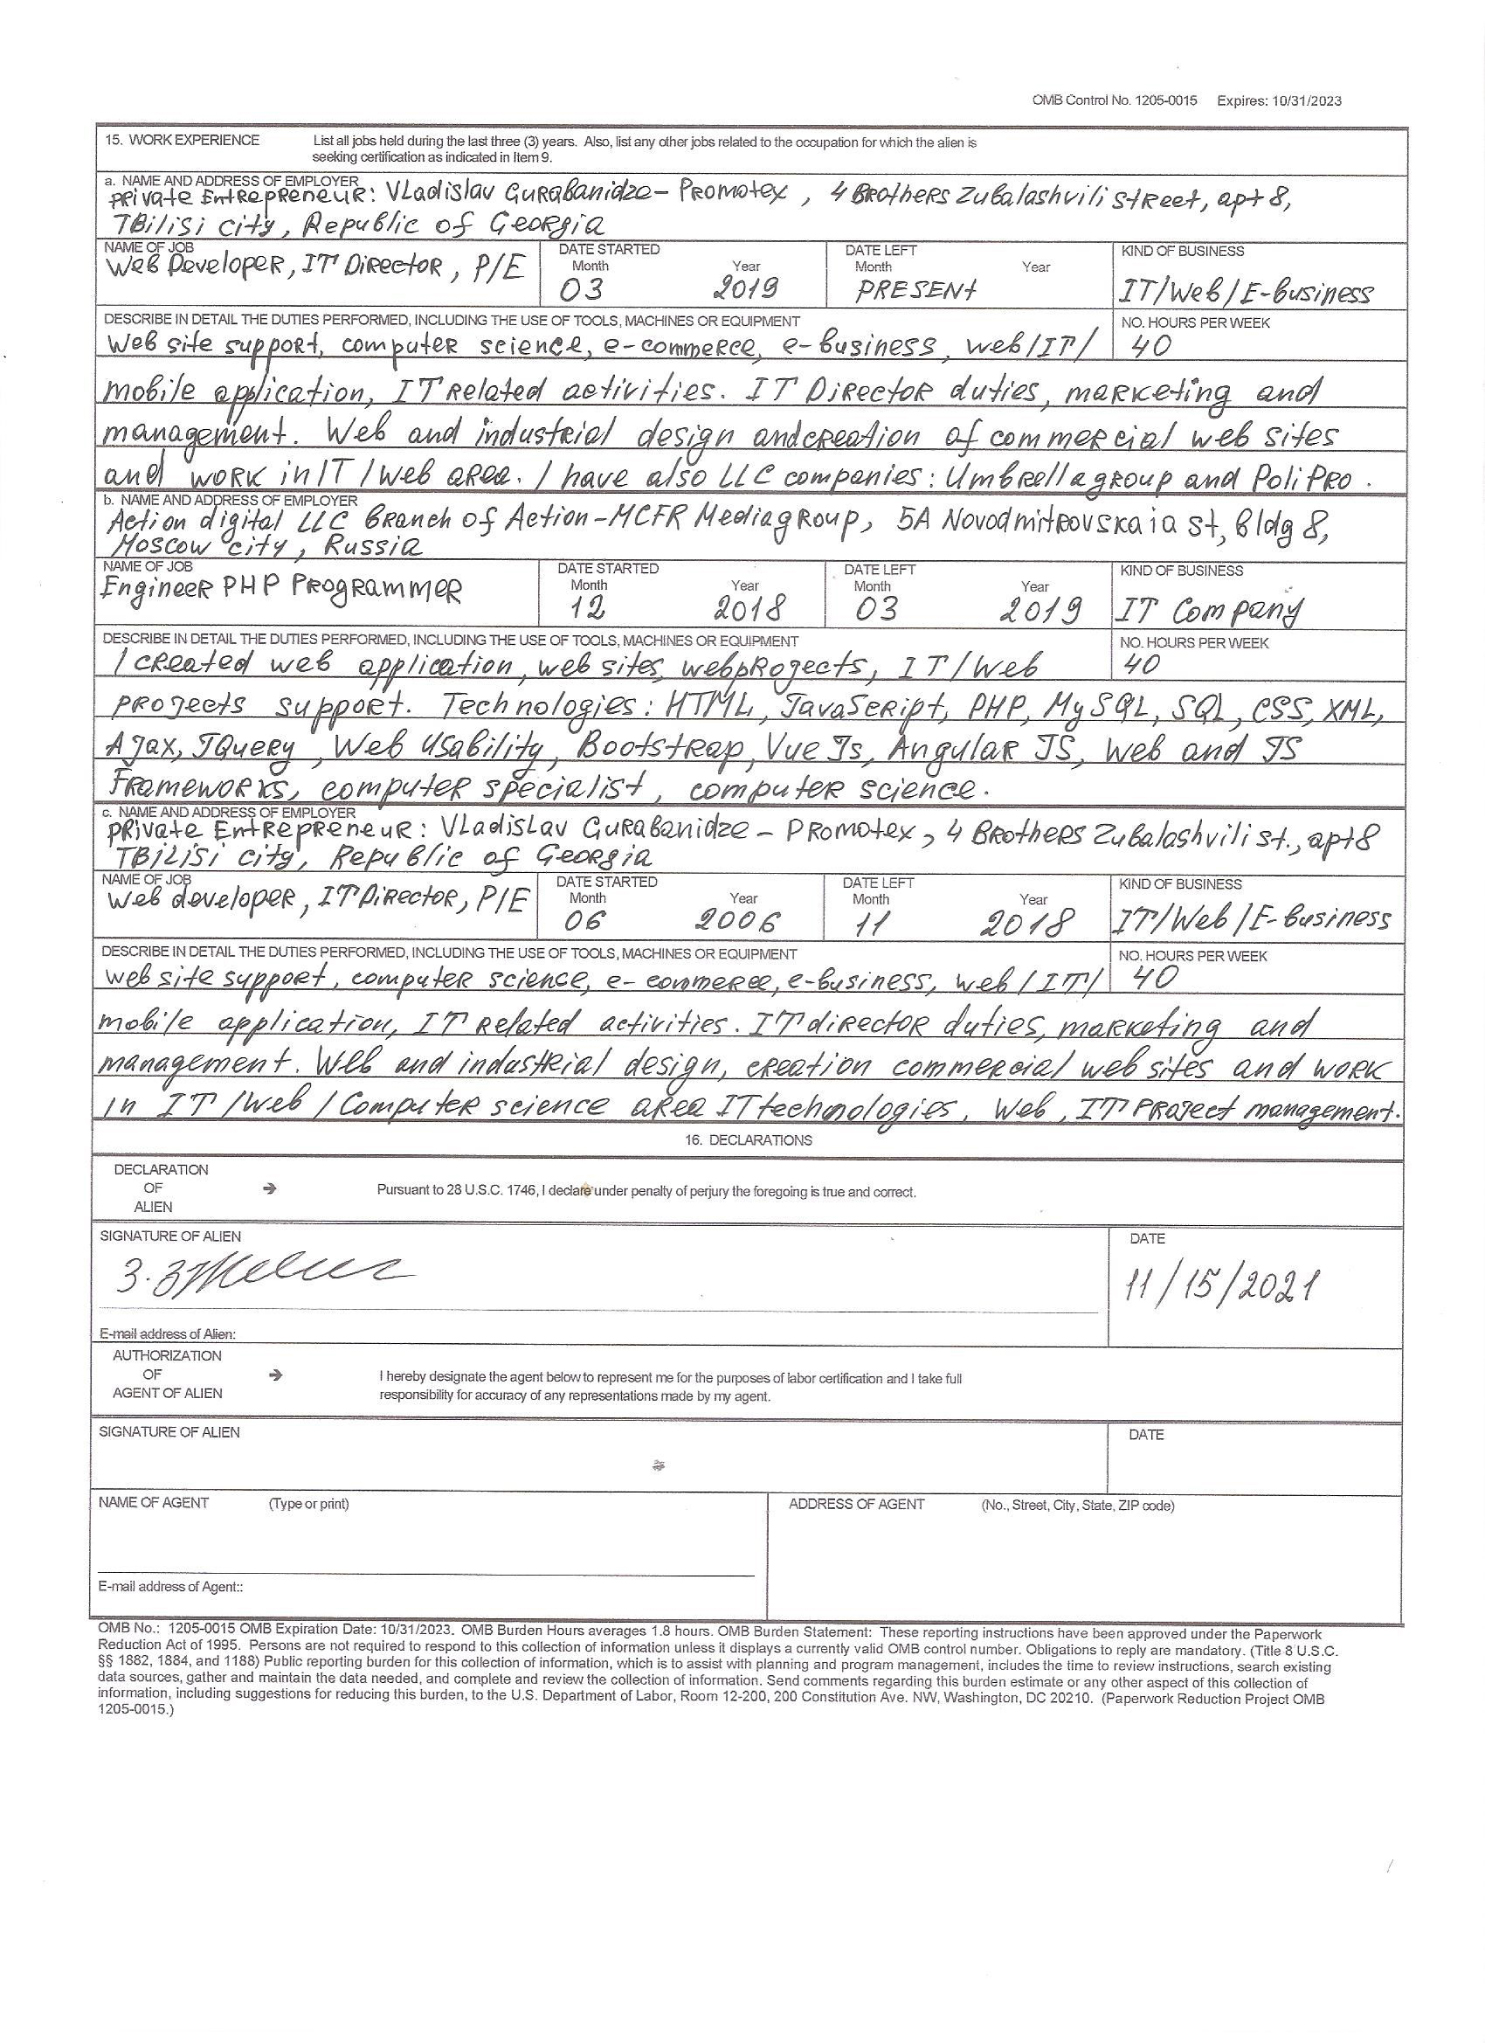 OMB Control No. 1205-0015 Expires: 10/31/2023
15. WORK EXPERIENCE List all jobs held during the last three (3) years. Also, list any other jobs related to the occupation for which the alien is
seeking certification as indicated in Item 9.
a. NAME AND ADDRESS OF EMPLOYER
Private Entrepreneur: Vladislav Gurabanidze - Promotex, 4 Brothers Zubalashvili street, apt 8,
Tbilisi city, Republic of Georgia
NAME OF JOB DATE STARTED DATE LEFT KIND OF BUSINESS
Month Year Month Year
Web Developer, IT Director, P/E 03 2019 PRESENT IT/Web/E-business
DESCRIBE IN DETAIL THE DUTIES PERFORMED, INCLUDING THE USE OF TOOLS, MACHINES OR EQUIPMENT NO. HOURS PER WEEK
Web site support, computer science, e-commerce, e-business, web/IT/ 40
mobile application, IT related activities. IT Director duties, marketing and
management. Web and industrial design and creation of commercial web sites
and work in IT/Web area. I have also LLC companies: Umbrella group and PoliPro.
b. NAME AND ADDRESS OF EMPLOYER
Action digital LLC Branch of Action-MCFR Mediagroup, 5A Novodmitrovskaia st, bldg 8,
Moscow city, Russia
NAME OF JOB DATE STARTED DATE LEFT KIND OF BUSINESS
Month Year Month Year
Engineer PHP Programmer 12 2018 03 2019 IT Company
DESCRIBE IN DETAIL THE DUTIES PERFORMED, INCLUDING THE USE OF TOOLS, MACHINES OR EQUIPMENT NO. HOURS PER WEEK
I created web application, web sites, webprojects, IT/Web 40
projects support. Technologies: HTML, JavaScript, PHP, MySQL, SQL, CSS, XML,
Ajax, JQuery, Web Usability, Bootstrap, Vue Js, Angular JS, Web and JS
Frameworks, computer specialist, computer science.
c. NAME AND ADDRESS OF EMPLOYER
Private Entrepreneur: Vladislav Gurabanidze - Promotex, 4 Brothers Zubalashvili st., apt 8
Tbilisi city, Republic of Georgia
NAME OF JOB DATE STARTED DATE LEFT KIND OF BUSINESS
Month Year Month Year
Web developer, IT Director, P/E 06 2006 11 2018 IT/Web/E-business
DESCRIBE IN DETAIL THE DUTIES PERFORMED, INCLUDING THE USE OF TOOLS, MACHINES OR EQUIPMENT NO. HOURS PER WEEK
Web site support, computer science, e-commerce, e-business, web/IT/ 40
mobile application, IT related activities. IT director duties, marketing and
management. Web and industrial design, creation commercial web sites and work
in IT/Web/Computer science area IT technologies, Web, IT Project management.
16. DECLARATIONS
DECLARATION
OF → Pursuant to 28 U.S.C. 1746, I declare under penalty of perjury the foregoing is true and correct.
ALIEN
SIGNATURE OF ALIEN DATE
11/15/2021
E-mail address of Alien:
AUTHORIZATION
OF → I hereby designate the agent below to represent me for the purposes of labor certification and I take full
AGENT OF ALIEN responsibility for accuracy of any representations made by my agent.
SIGNATURE OF ALIEN DATE
NAME OF AGENT (Type or print) ADDRESS OF AGENT (No., Street, City, State, ZIP code)
E-mail address of Agent::
OMB No.: 1205-0015 OMB Expiration Date: 10/31/2023. OMB Burden Hours averages 1.8 hours. OMB Burden Statement: These reporting instructions have been approved under the Paperwork
Reduction Act of 1995. Persons are not required to respond to this collection of information unless it displays a currently valid OMB control number. Obligations to reply are mandatory. (Title 8 U.S.C.
§§ 1882, 1884, and 1188) Public reporting burden for this collection of information, which is to assist with planning and program management, includes the time to review instructions, search existing
data sources, gather and maintain the data needed, and complete and review the collection of information. Send comments regarding this burden estimate or any other aspect of this collection of
information, including suggestions for reducing this burden, to the U.S. Department of Labor, Room 12-200, 200 Constitution Ave. NW, Washington, DC 20210. (Paperwork Reduction Project OMB
1205-0015.)